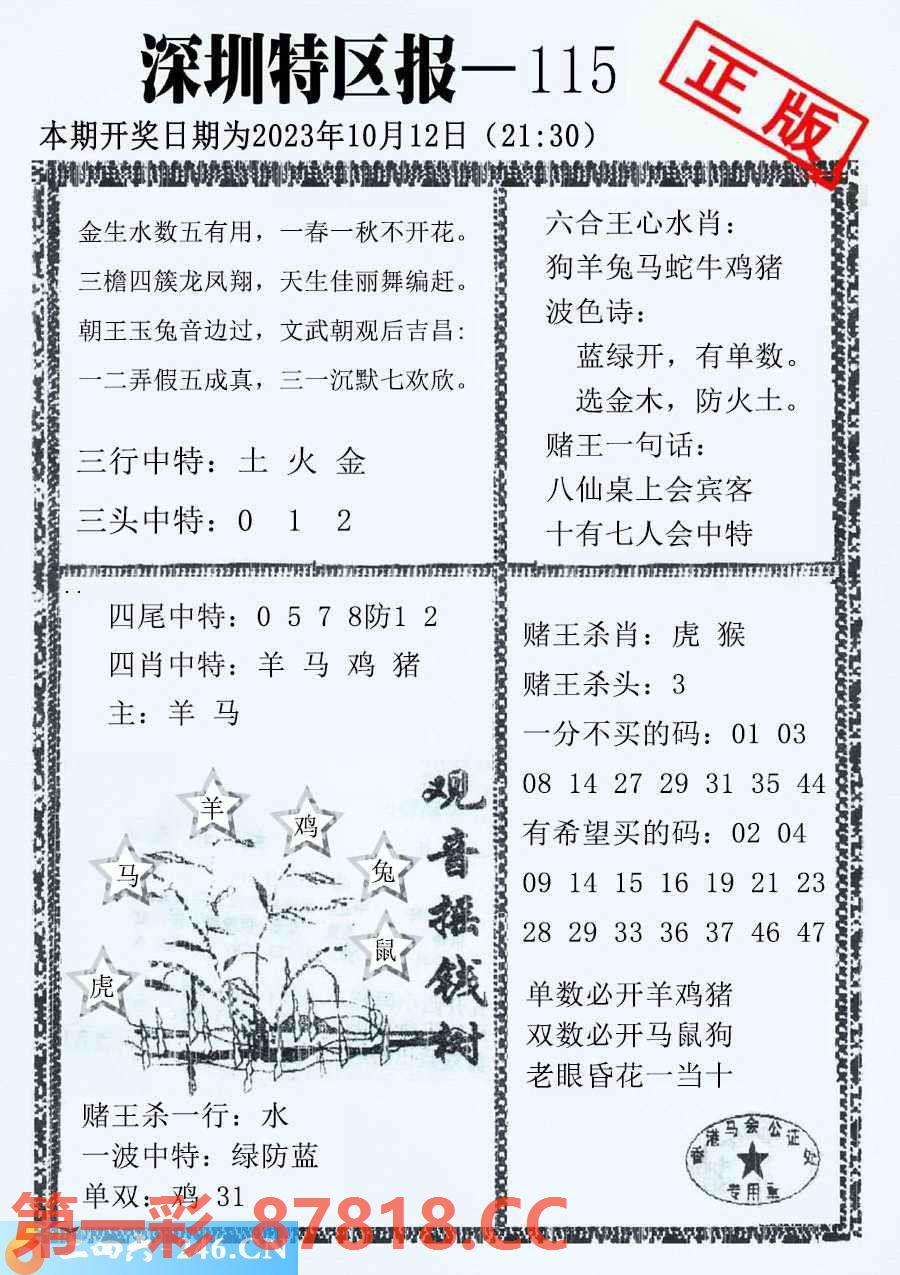 深圳特区报—115
正版
本期开奖日期为2023年10月12日（21:30）
金生水数五有用，一春一秋不开花。
三檐四簇龙凤翔，天生佳丽舞编赶。
朝王玉兔音边过，文武朝观后吉昌：
一二弄假五成真，三一沉默七欢欣。
三行中特：土 火 金
三头中特：0 1 2
六合王心水肖：
狗羊兔马蛇牛鸡猪
波色诗：
蓝绿开，有单数。
选金木，防火土。
赌王一句话：
八仙桌上会宾客
十有七人会中特
四尾中特：0 5 7 8防1 2
四肖中特：羊 马 鸡 猪
主：羊 马
羊
鸡
马
兔
鼠
虎
观音摇钱树
赌王杀一行：水
一波中特：绿防蓝
单双：鸡 31
赌王杀肖：虎 猴
赌王杀头：3
一分不买的码：01 03
08 14 27 29 31 35 44
有希望买的码：02 04
09 14 15 16 19 21 23
28 29 33 36 37 46 47
单数必开羊鸡猪
双数必开马鼠狗
老眼昏花一当十
香港马会公证处
专用章
第一彩 87818.CC
246.CN